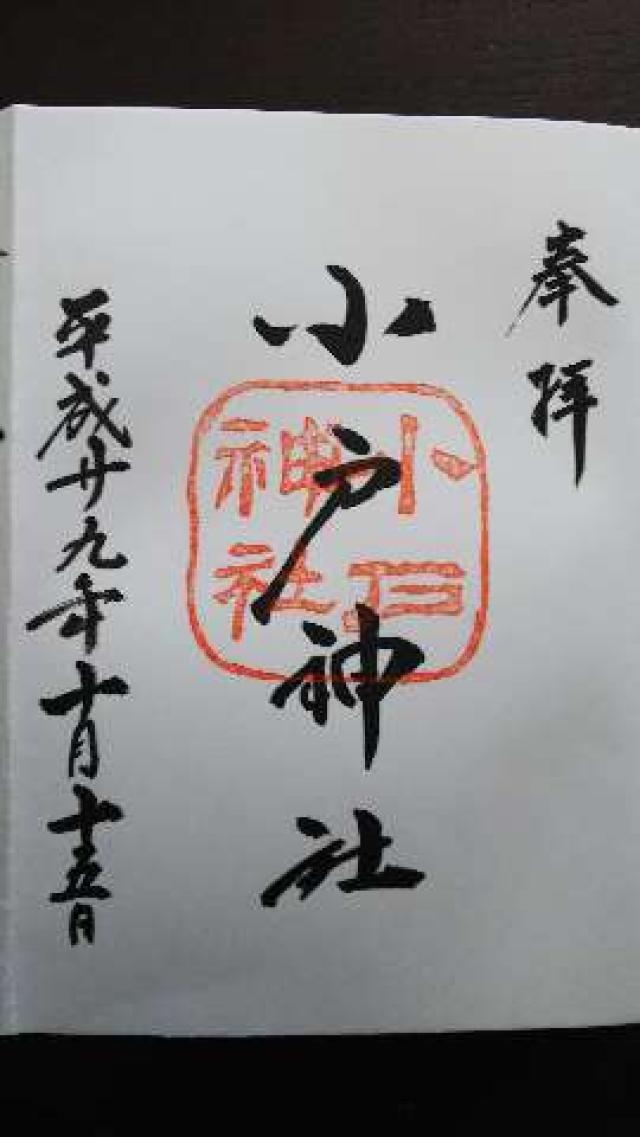 奉拝
小戸神社
小戸
神社
平成廿九年十月十五日